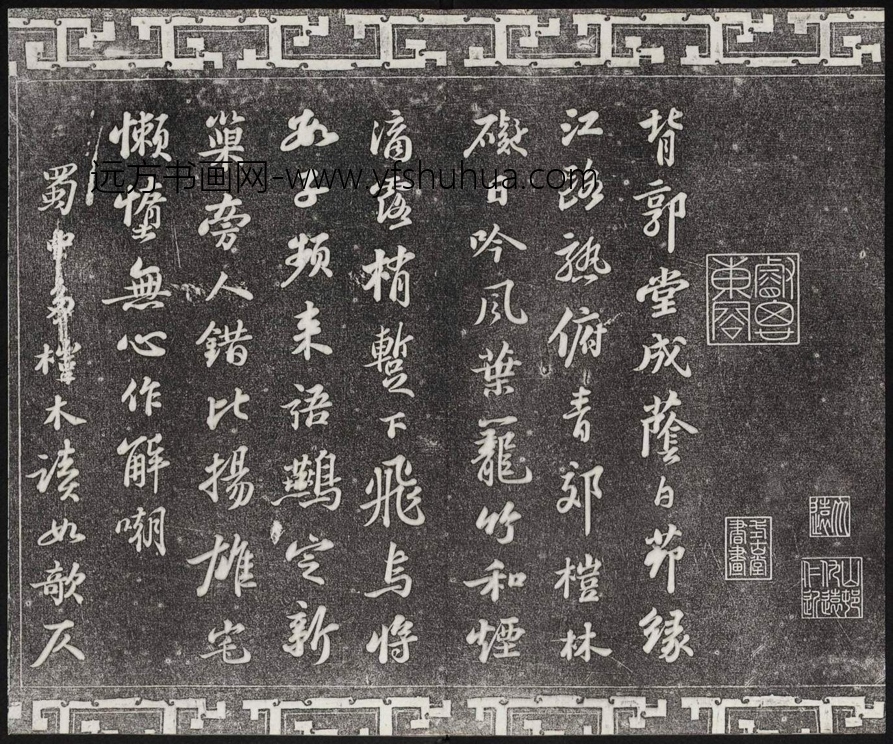 睿思東閣
背郭堂成蔭白茆緣
江路熟俯青郊榿林
礙日吟風葉籠竹和煙
滴露梢暫下飛烏將
數子頻來語鷰定新
巢旁人錯比揚雄宅
懶惰無心作解嘲
蜀中多榿木讀如欹仄
远方书画网-www.yfshuhua.com